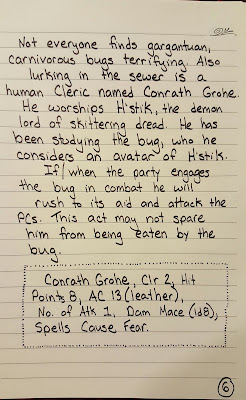 Not everyone finds gargantuan,
carnivorous bugs terrifying. Also
lurking in the sewer is a
human Cleric named Conrath Grohe.
He worships H'stik, the demon
lord of skittering dread. He has
been studying the bug, who he
considers an avatar of H'stik.
If/when the party engages
the bug in combat he will
rush to its aid and attack the
PCs. This act may not spare
him from being eaten by the
bug.
Conrath Grohe, Clr 2, Hit
Points 8, AC 13 (leather),
No. of Atk 1, Dam Mace (1d8),
Spells Cause Fear.
6